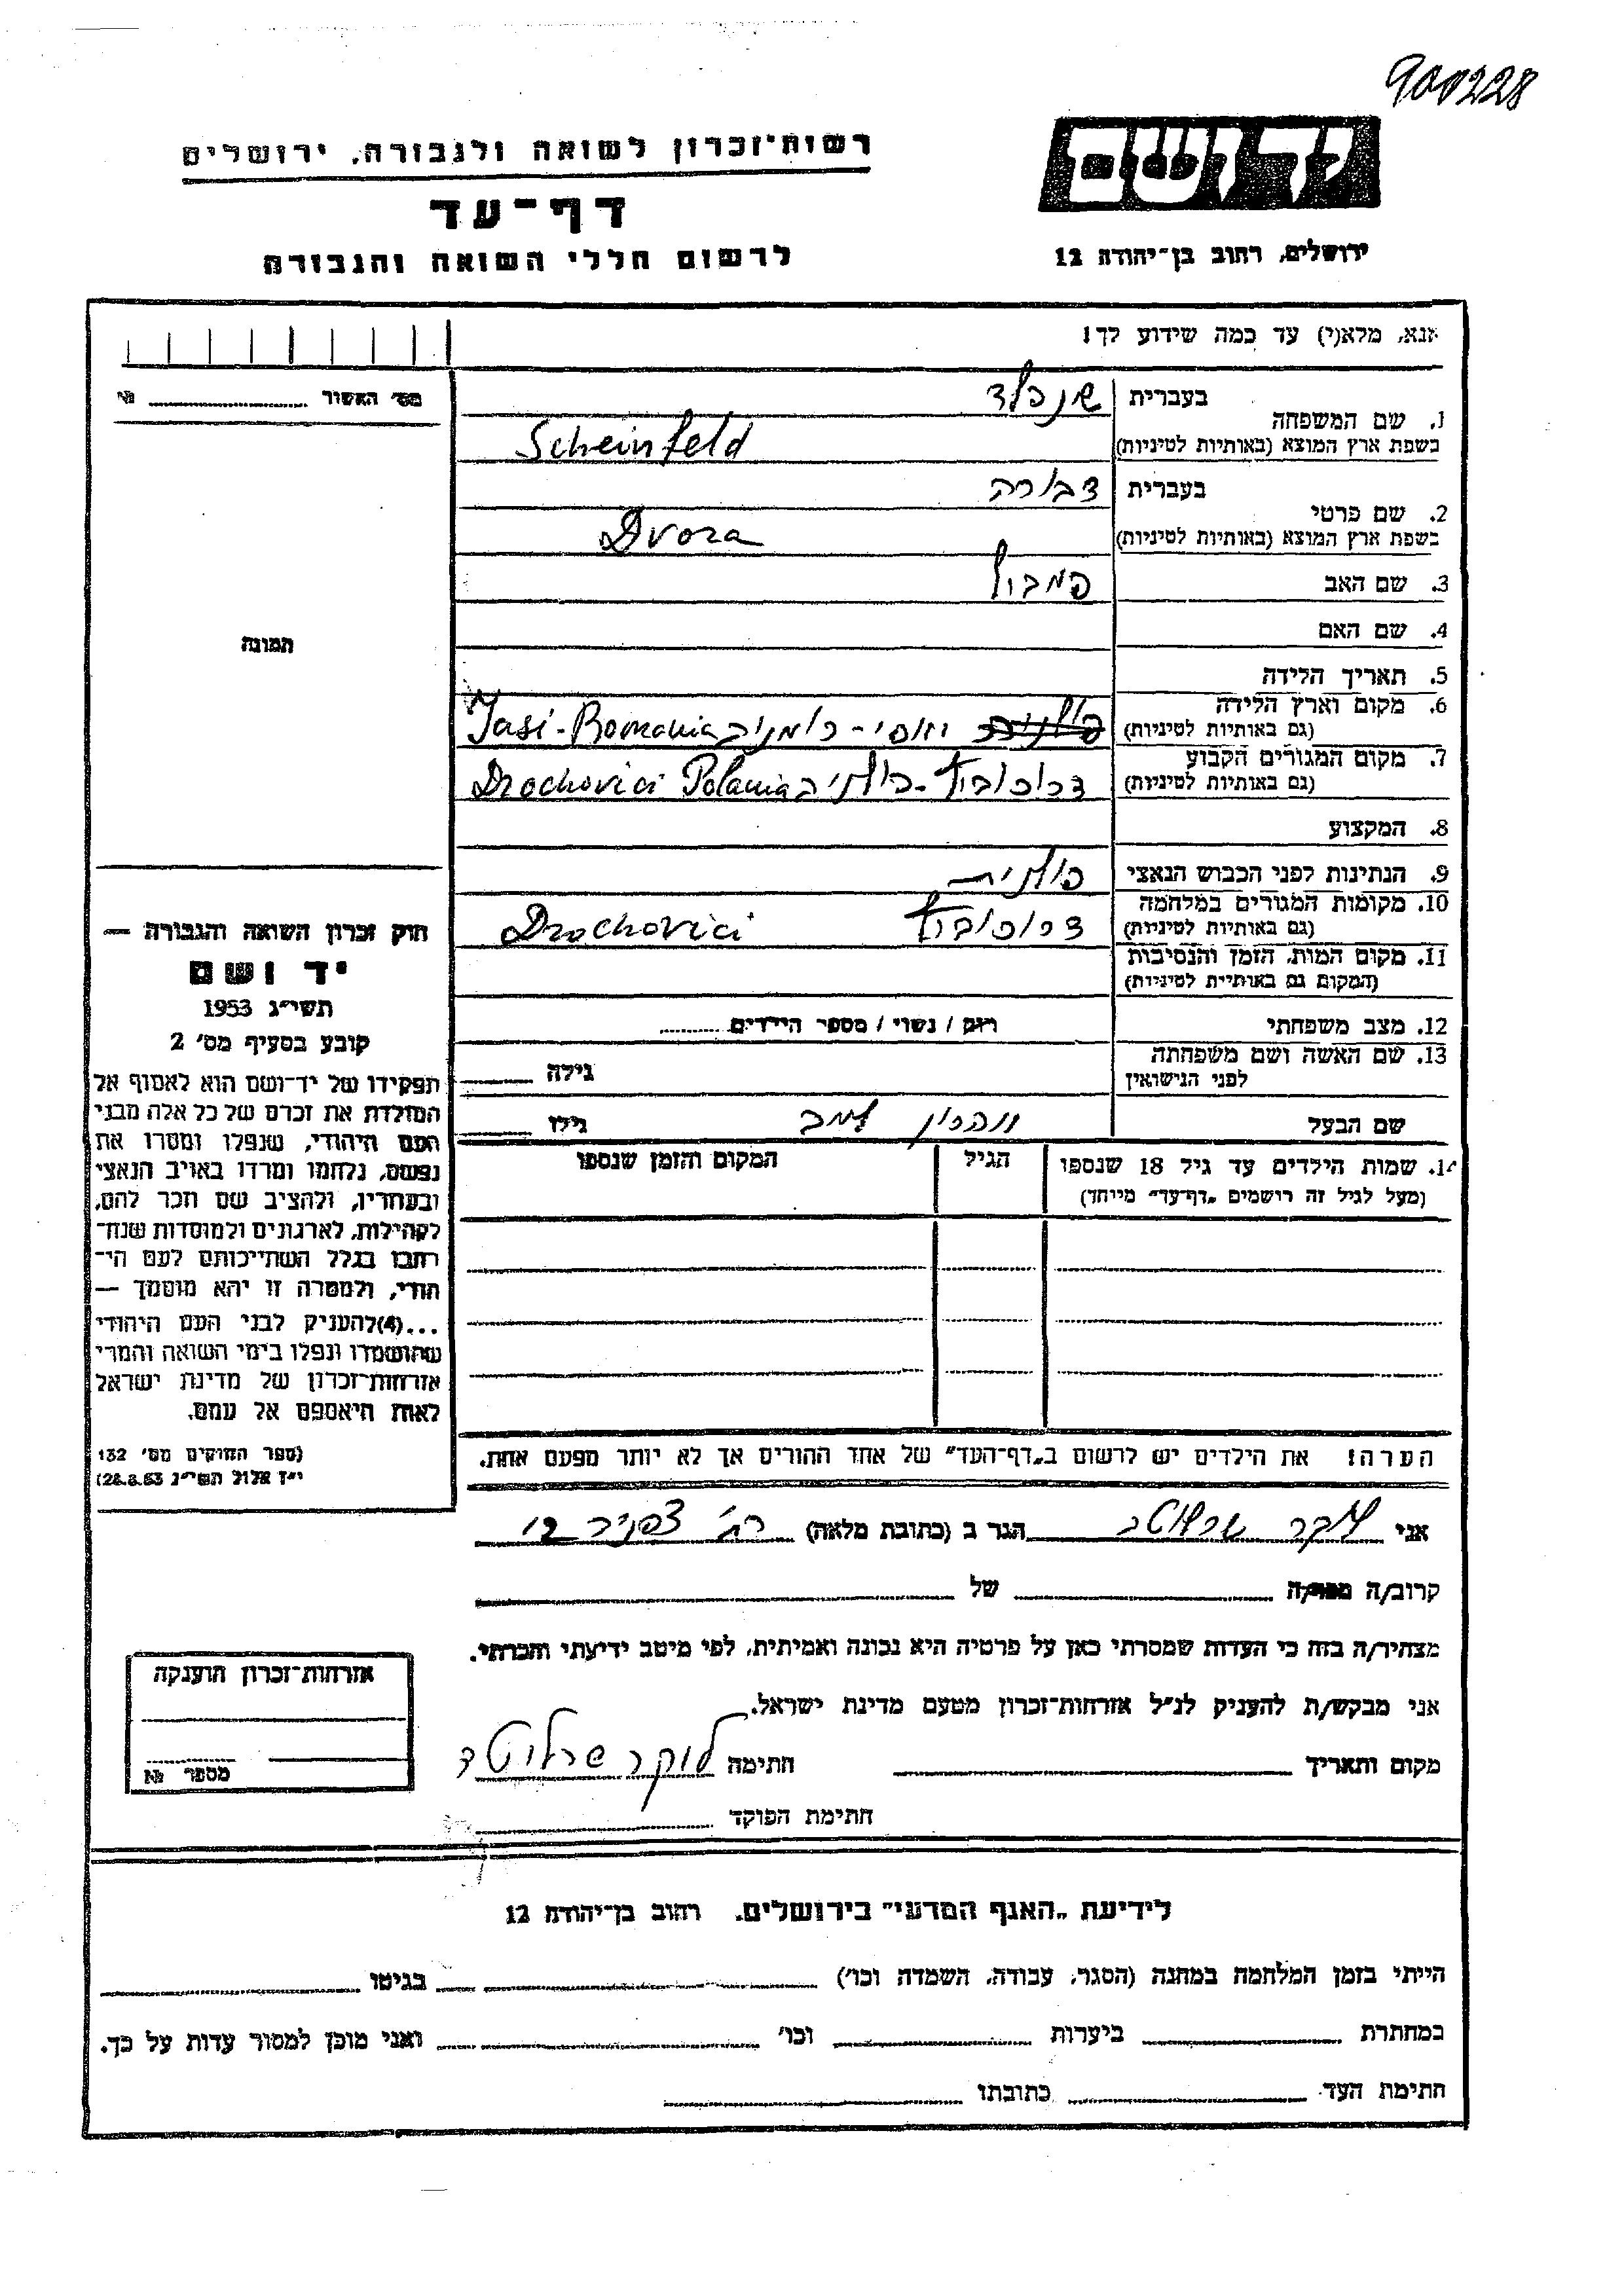 900228
יד ושם
רשות־זכרון לשואה ולגבורה, ירושלים
דף־עד
לרשום חללי השואה והגבורה
ירושלים, רחוב בן־יהודה 12
אנא, מלא(י) עד כמה שידוע לך!
מס׳ האשור № ....................
1. שם המשפחה
בעברית שנפלד
בשפת ארץ המוצא (באותיות לטיניות) Scheinfeld
2. שם פרטי
בעברית דבורה
בשפת ארץ המוצא (באותיות לטיניות) Dvora
3. שם האב
4. שם האם
5. תאריך הלידה
6. מקום וארץ הלידה
(גם באותיות לטיניות) יאסי - רומניה Jasi - Romania
7. מקום המגורים הקבוע
(גם באותיות לטיניות) דרוכוביץ - פולניה Drochovici Polania
8. המקצוע
9. הנתינות לפני הכבוש הנאצי פולנית
10. מקומות המגורים במלחמה
(גם באותיות לטיניות) דרוכוביץ Drochovici
11. מקום המות, הזמן והנסיבות
(המקום גם באותיית לטיניות)
12. מצב משפחתי רווק / נשוי / מספר הילדים ..........
13. שם האשה ושם משפחתה
לפני הנישואין גילה
שם הבעל גילו
14. שמות הילדים עד גיל 18 שנספו
(מעל לגיל זה רושמים „דף־עד״ מייחד)
הגיל
המקום והזמן שנספו
הערה! את הילדים יש לרשום ב„דף־העד״ של אחד ההורים אך לא יותר מפעם אחת.
תמונה
חוק זכרון השואה והגבורה —
יד ושם
תשי״ג 1953
קובע בסעיף מס׳ 2
תפקידו של יד־ושם הוא לאסוף אל
המולדת את זכרם של כל אלה מבני
העם היהודי, שנפלו ומסרו את
נפשם, נלחמו ומרדו באויב הנאצי
ובעוזריו, ולהציב שם וזכר להם,
לקהילות, לארגונים ולמוסדות שנח־
רבו בגלל השתייכותם לעם הי־
הודי, ולמטרה זו יהא מוסמך —
...(4)להעניק לבני העם היהודי
שהושמדו ונפלו בימי השואה והמרי
אזרחות־זכרון של מדינת ישראל
לאות היאספם אל עמם.
(ספר החוקים מס׳ 132
י״ז אלול תשי״ג 28.8.53)
אני הגר ב (כתובת מלאה) רח׳ 12
קרוב/ה מכר/ה של
מצהיר/ה בזה כי העדות שמסרתי כאן על פרטיה היא נכונה ואמיתית, לפי מיטב ידיעתי והכרתי.
אני מבקש/ת להעניק לנ״ל אזרחות־זכרון מטעם מדינת ישראל.
מקום ותאריך חתימה
חתימת הפוקד
אזרחות־זכרון הוענקה
מספר №
לידיעת „האגף המדעי״ בירושלים, רחוב בן־יהודה 12
הייתי בזמן המלחמה במחנה (הסגר, עבודה, השמדה וכו׳) בגיטו
במחתרת ביערות וכו׳ ואני מוכן למסור עדות על כך.
חתימת העד כתובתו